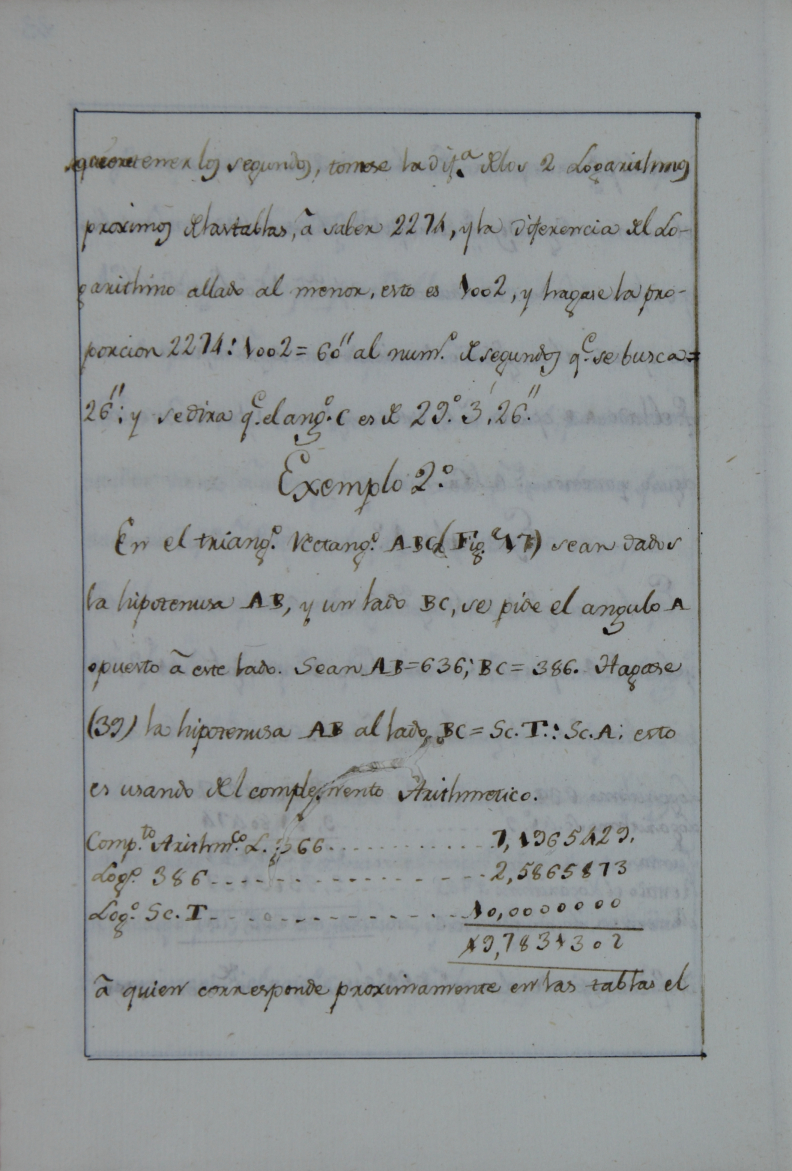 tener los segundos, tomese la dif.ª de los 2 Logarithmos
proximos de las tablas, â saber 2274, y la diferencia del Lo-
garithmo allado al menor, esto es 1002, y hagase la pro-
porcion 2274 : 1002 = 60" al num.º de segundos q.e se busca =
26"; y se dira q.e el ang.º C es de 29.º 3', 26".
Exemplo 2.º
En el triang.º Rectang.º ABC (Fig.ª 17) sean dados
la hipotenusa AB, y un lado BC, se pide el angulo A
opuesto â este lado. Sean AB = 636; BC = 386. Hagase
(39) la hipotenusa AB al lado BC = Sc. T. : Sc. A; esto
es usando del complemento Arithmetico.
Comp.to Arithm.co L. 66 . . . . . . . . . . . 7,1965429.
Log.º 386 - - - - - - - - - - - - - - 2,5865873
Log.º Sc. T - - - - - - - - - - - - - 10,0000000
19,7831302
â quien corresponde proximamente en las tablas el